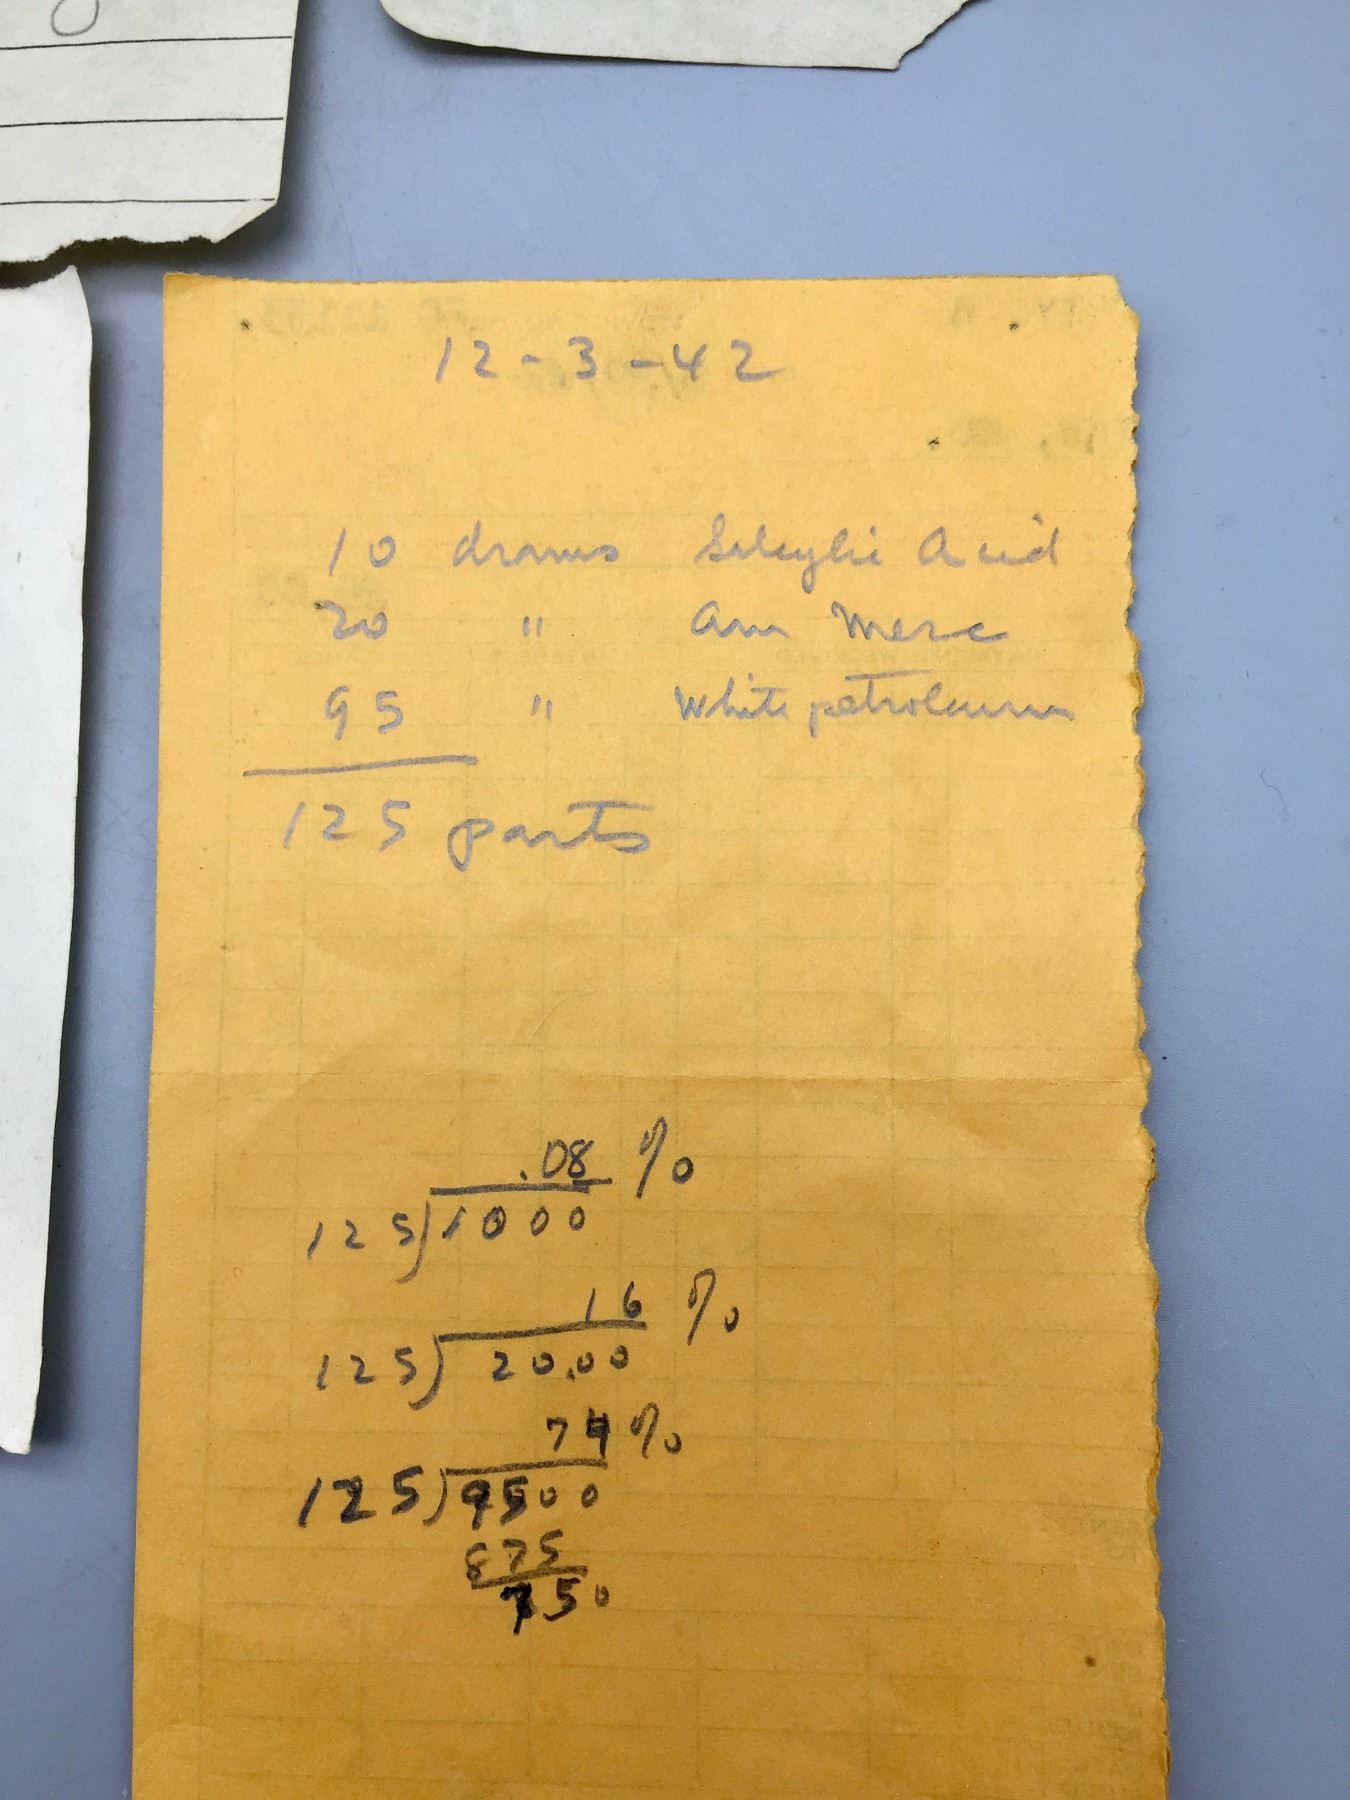 12-3-42
10 drams Salicylic Acid
20 " Am Merc
95 " White petrolaum
125 parts
.08 %
125)1000
16 %
125)20.00
74%
125)9500
875
750